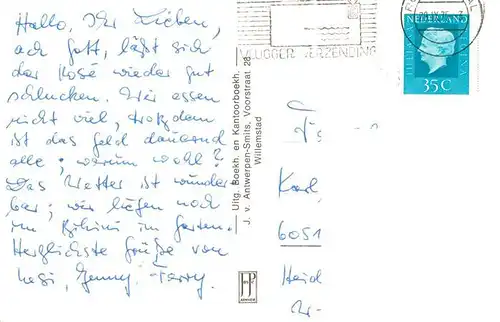 Hallo, Ihr Lieben,
ach Gott, läßt sich
der Rosé wieder gut
schlucken. Wir essen
nicht viel, trotzdem
ist das Geld dauernd
alle; warum wohl?
Das Wetter ist wunder
bar; wir liegen noch
im Bikini im Garten.
Herzlichste Grüße von
Jenny, Ferry.
Uitg. Boekh. en Kantoorboekh.
J. v. Antwerpen-Smits, Voorstraat 28
Willemstad
VLUGGER VERZENDING
NEDERLAND
35C
Karl
6051
Heid